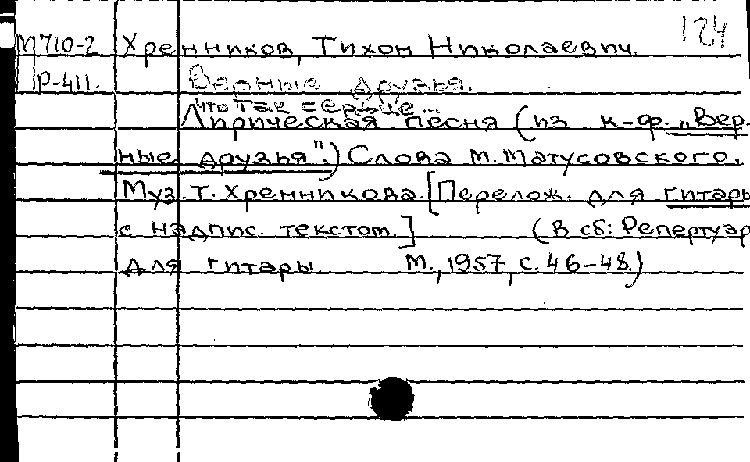 124
М710-2 Хренников, Тихон Николаевич.
Р-411. Верные друзья.
Что так сердце...
Лирическая песня (из к-ф. „Вер-
ные друзья".) Слова М. Матусовского.
Муз. Т. Хренникова. [Перелож. для гитары
с надпис. текстом.] (В сб: Репертуар
для гитары М., 1957, с. 46-48.)